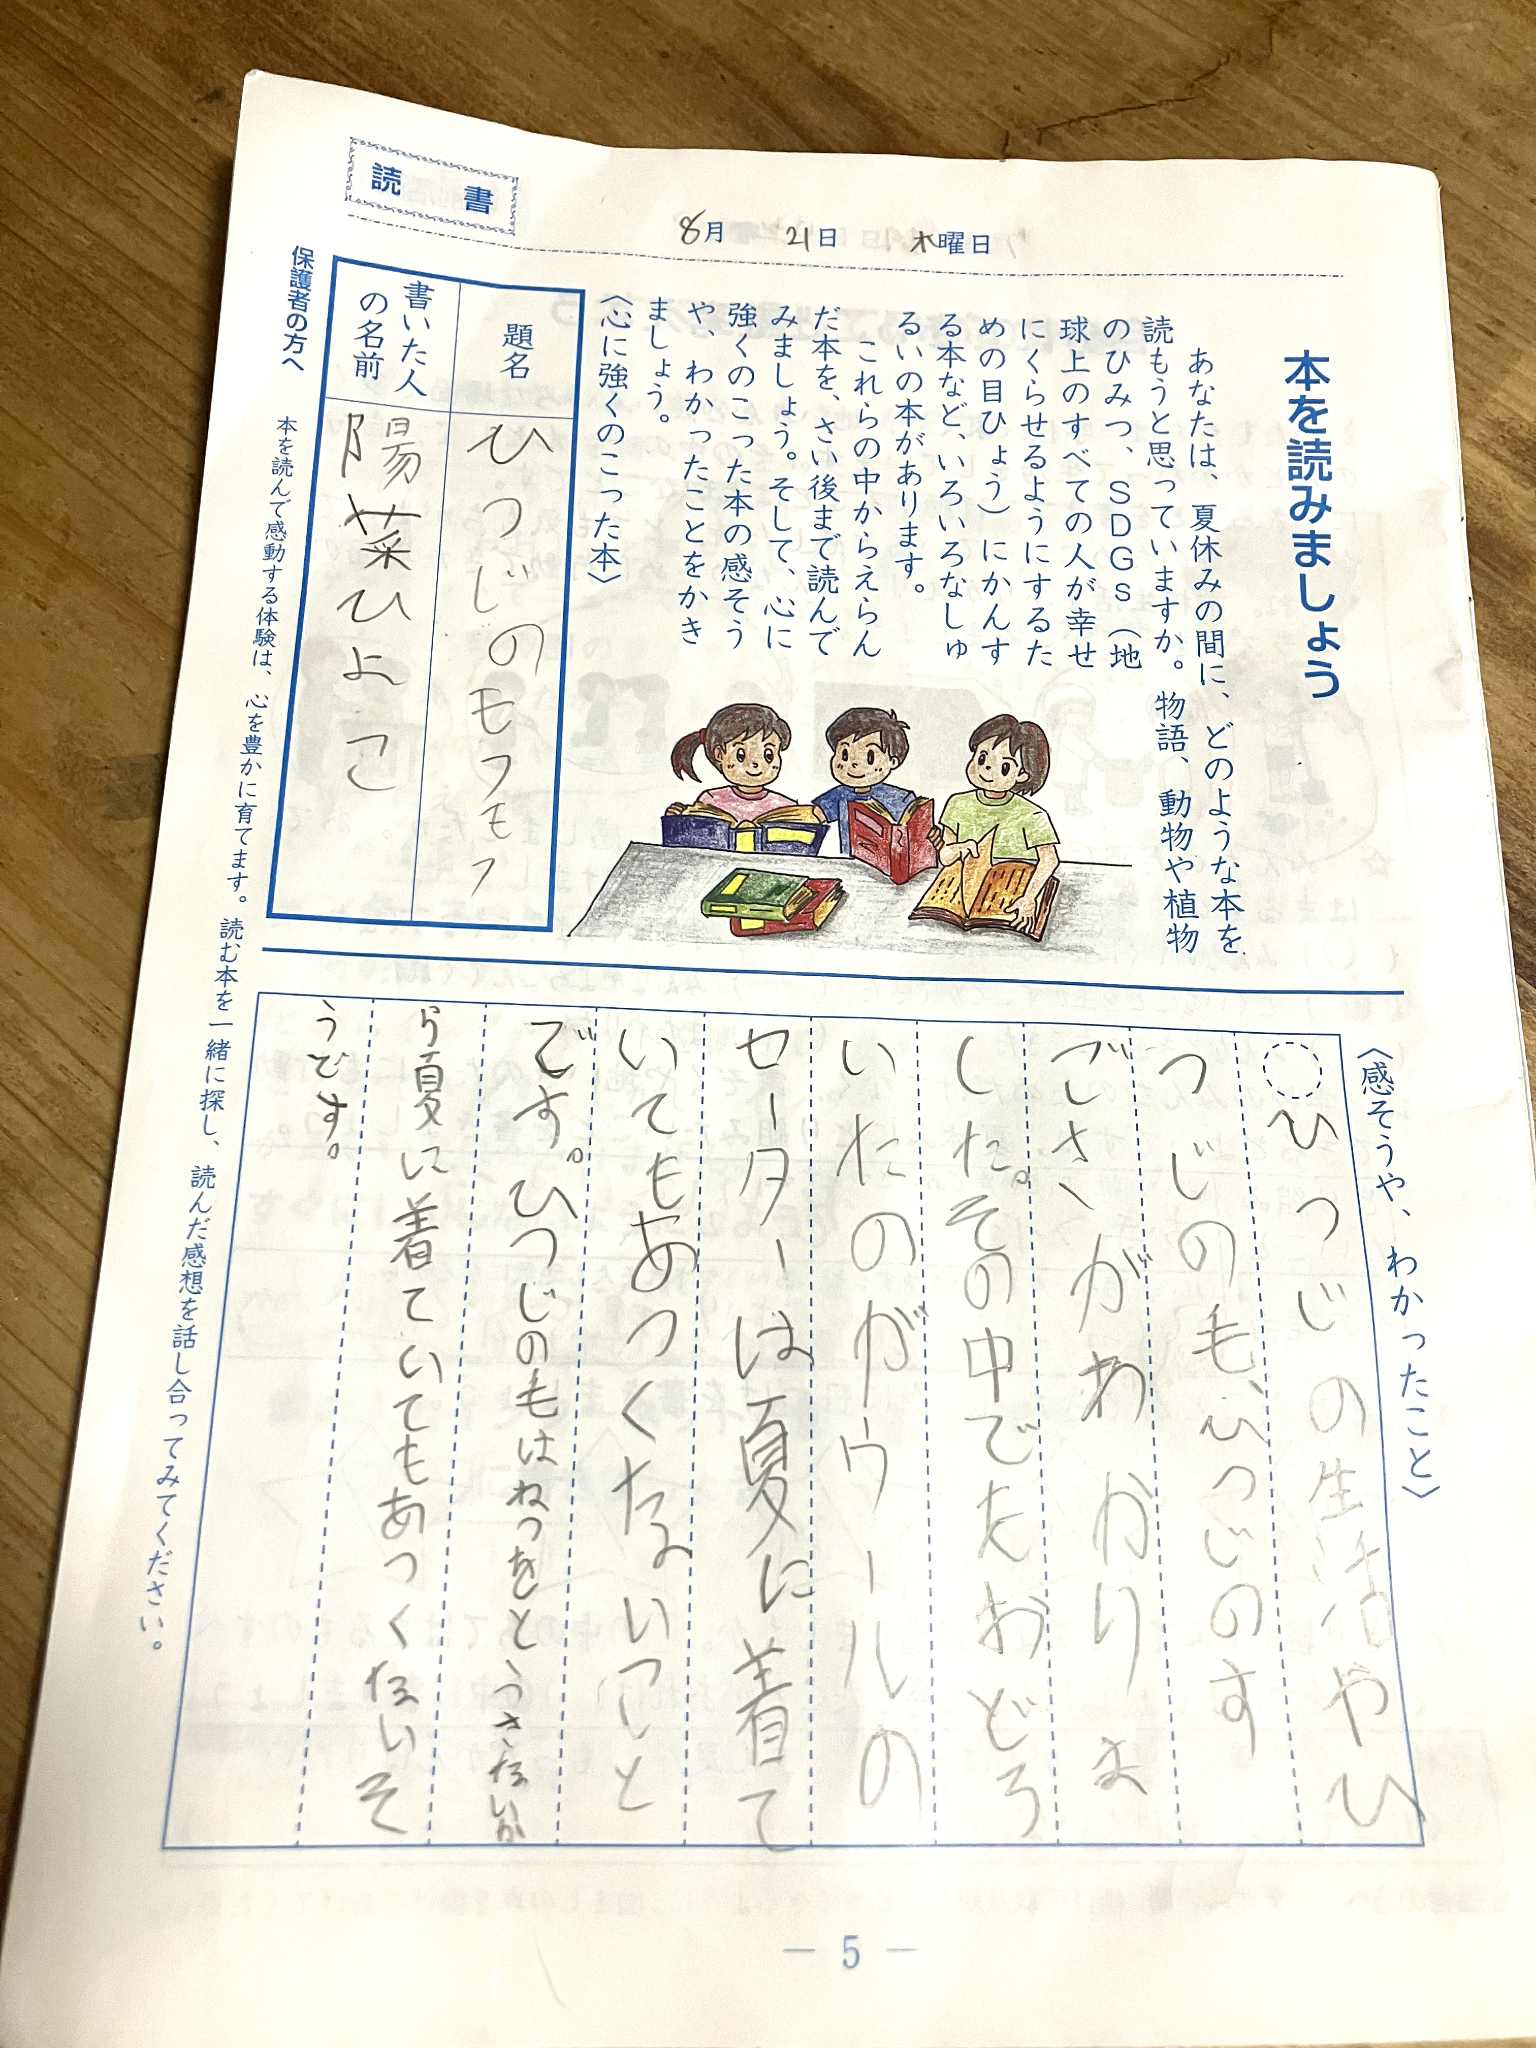 読書
8月 21日 水曜日
本を読みましょう
あなたは、夏休みの間に、どのような本を
読もうと思っていますか。物語、動物や植物
のひみつ、SDGs（地
球上のすべての人が幸せ
にくらせるようにするた
めの目ひょう）にかんす
る本など、いろいろなしゅ
るいの本があります。
これらの中からえらん
だ本を、さい後まで読んで
みましょう。そして、心に
強くのこった本の感そう
や、わかったことをかき
ましょう。
〈心に強くのこった本〉
題名
ひつじのモフモフ
書いた人
の名前
陽菜ひよこ
保護者の方へ
本を読んで感動する体験は、心を豊かに育てます。読む本を一緒に探し、読んだ感想を話し合ってみてください。
〈感そうや、わかったこと〉
ひつじの生活やひ
つじの毛、ひつじのす
ごさがわかりま
した。その中でたおどろ
いたのがウールの
セーターは夏に着て
いてもあつくないこと
です。ひつじのもはねつをとうさないか
ら夏に着ていてもあつくないそ
うです。
― 5 ―